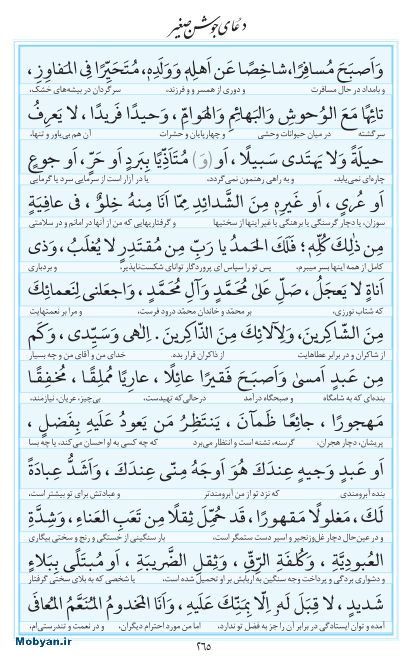 دعای جوشن صغیر
وَاَصبَحَ مُسافِرًا، شاخِصًا عَن اَهلِهِ وَوَلَدِهِ، مُتَحَيِّرًا فِی المَفاوِزِ،
و بامداد در حال مسافرت و دوری از همسر و و فرزند، سرگردان در بیشه‌های خشک،
تائِهًا مَعَ الوُحوشِ وَالبَهائِمِ وَالهَوامِّ، وَحيدًا فَريدًا، لا يَعرِفُ
سرگشته در میان حیوانات وحشی و چهارپایان و حشرات آن هم بی‌یاور و تنها،
حيلَةً وَلا يَهتَدی سَبيلًا، اَو (وَ) مُتَاَذِّيًا بِبَردٍ اَو حَرٍّ، اَو جوعٍ
چاره‌ای نمی‌یابد. و به راهی رهنمون نمی‌گردد، یا در آزار است از سرمایی سرد یا گرمایی
اَو عُریٍ، اَو غَيرِهٖ مِنَ الشَّدائِدِ مِمّا اَنَا مِنهُ خِلوٌ، فی عافِيَةٍ
سوزان، یا دچار گرسنگی یا برهنگی یا غیر اینها از سختیها و گرفتاریهایی که من از آنها در امانم و در سلامتی
مِن ذلِكَ كُلِّهٖ؛ فَلَكَ الحَمدُ يا رَبِّ مِن مُقتَدِرٍ لا يُغلَبُ، وَذی
کامل از همه اینها بسر میبرم. پس تو را سپاس ای پروردگار توانای شکست‌ناپذیر، و بردباری
اَناةٍ لا يَعجَلُ، صَلِّ عَلیٰ مُحَمَّدٍ وَآلِ مُحَمَّدٍ، وَاجعَلنی لِنَعمائِكَ
که شتاب نورزی، بر محمّد و خاندان محمّد درود فرست، و مرا بر نعمتهایت
مِنَ الشّاكِرينَ، وَلِآلائِكَ مِنَ الذّاكِرينَ. اِلٰهی وَسَيِّدی، وَكَم
از شاکران و در برابر عطاهایت از ذاکران قرار بده. خدای من و آقای من و چه بسیار
مِن عَبدٍ اَمسیٰ وَاَصبَحَ فَقيرًا عائِلًا، عارِيًا مُملِقًا، مُخفِقًا
بنده‌ای که به شامگاه و صبحگاه درآمد در حالی که تهیدست، بی‌چیز، عریان، نیازمند،
مَهجورًا، جائِعًا ظَمآنَ، يَنتَظِرُ مَن يَعودُ عَلَيهِ بِفَضلٍ،
پریشان، دچار هجران، گرسنه، تشنه است و انتظار می‌برد که چه کسی به او احسان می‌کند، یا چه بسا
اَو عَبدٍ وَجيهٍ عِندَكَ هُوَ اَوجَهُ مِنّی عِندَكَ، وَاَشَدُّ عِبادَةً
بنده آبرومندی که نزد تو از من آبرومندتر و عبادتش برای تو بیشتر است،
لَكَ، مَغلولًا مَقهورًا، قَد حُمِّلَ ثِقلًا مِن تَعَبِ العَناءِ، وَشِدَّةِ
و در عین حال دچار غل‌وزنجیر و اسیر دست ستمگر است، بار سنگینی از خستگی و رنج و سختی بیگاری
العُبودِيَّةِ، وَكُلفَةِ الرِّقِّ، وَثِقلِ الضَّريبَةِ، اَو مُبتَلًی بِبَلاءٍ
و دشواری بردگی و پرداخت وجه سنگین به اربابش بر او تحمیل شده است، یا شخصی که به بلای سختی گرفتار
شَديدٍ، لا قِبَلَ لَهٗ اِلّا بِمَنِّكَ عَلَيهِ، وَاَنَا المَخدومُ المُنَعَّمُ المُعافَی
آمده و توان ایستادگی در برابر آن را جز به فضل تو ندارد، اما من مورد احترام دیگران، و در نعمت و تندرستی‌ام،
Mobyan.ir
۲٦۵